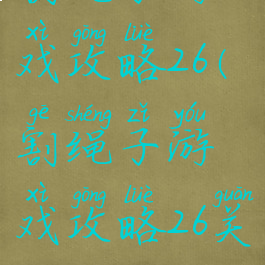 xì gōng lüè
戏攻略26(
gē shéng zǐ yóu
割绳子游
xì gōng lüè guān
戏攻略26关